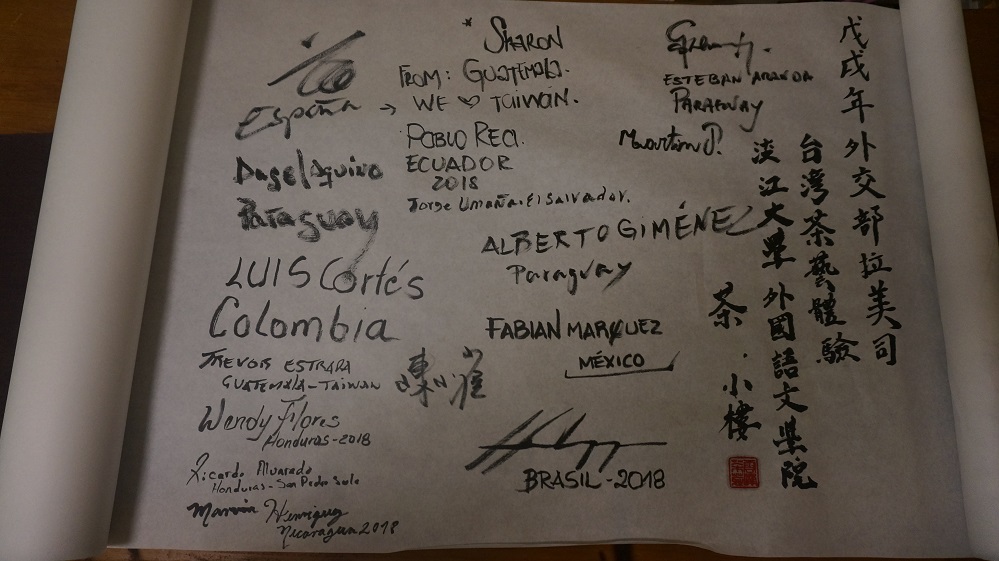 戊戌年外交部拉美司
台灣茶藝體驗
淡江大學外國語文學院
茶.小樓
España
Angel Aquino
Paraguay
LUIS Cortés
Colombia
TREVOR ESTRADA
GUATEMALA-TAIWAN
Wendy Flores
Honduras-2018
Ricardo Alvarado
Honduras-San Pedro Sula
Marvin Henriquez
Nicaragua 2018
* SHARON
FROM: GUATEMALA.
→ WE ♡ TAIWAN.
PABLO REA.
ECUADOR
2018
Jorge Umaña. El Salvador.
ESTEBAN ARANDA
PARAGUAY
Martin P.
ALBERTO GIMÉNEZ
Paraguay
FABIAN MARQUEZ
MÉXICO
BRASIL-2018